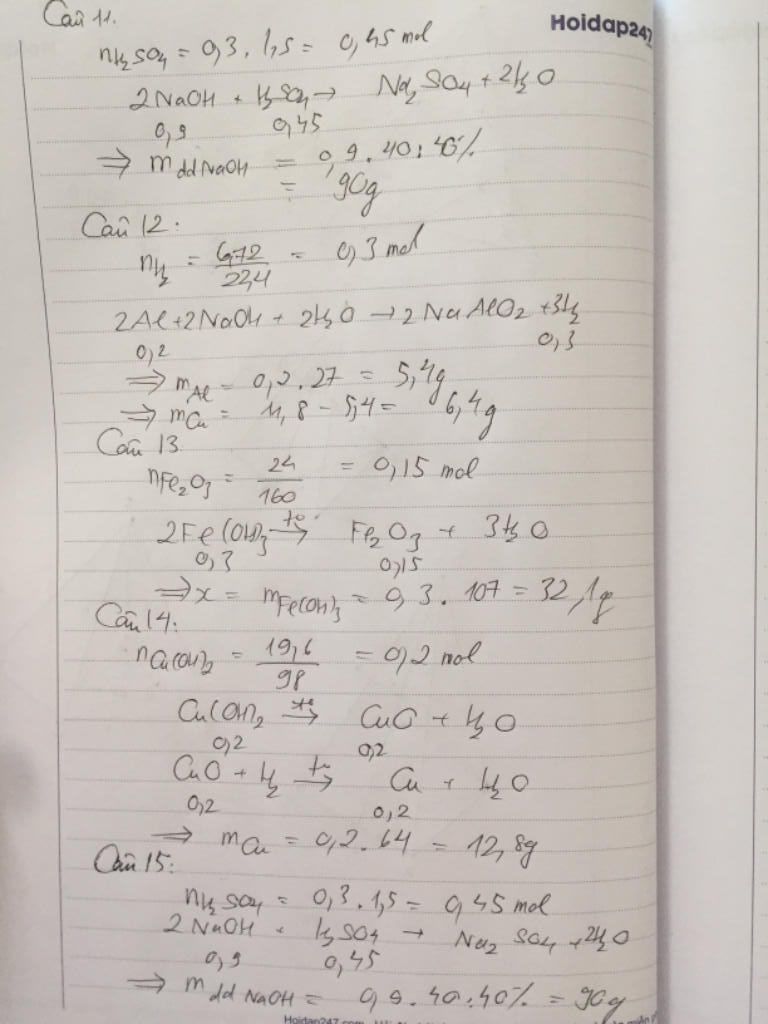 Câu 11.
Hoidap247
nH₂SO₄ = 0,3 . 1,5 = 0,45 mol
2NaOH + H₂SO₄ → Na₂SO₄ + 2H₂O
0,9 0,45
⇒ m dd NaOH = 0,9 . 40 : 40%
= 90g
Câu 12:
nH₂ = 6,72/22,4 = 0,3 mol
2Al+2NaOH + 2H₂O → 2NaAlO₂ + 3H₂
0,2 0,3
⇒ mAl = 0,2 . 27 = 5,4g
⇒ mCu = 11,8 - 5,4 = 6,4g
Câu 13
nFe₂O₃ = 24/160 = 0,15 mol
2Fe(OH)₃ →(to) Fe₂O₃ + 3H₂O
0,3 0,15
⇒ x = mFe(OH)₃ = 0,3 . 107 = 32,1g
Câu 14:
nCu(OH)₂ = 19,6/98 = 0,2 mol
Cu(OH)₂ →(to) CuO + H₂O
0,2 0,2
CuO + H₂ →(to) Cu + H₂O
0,2 0,2
⇒ mCu = 0,2 . 64 = 12,8g
Câu 15:
nH₂SO₄ = 0,3 . 1,5 = 0,45 mol
2NaOH + H₂SO₄ → Na₂SO₄ + 2H₂O
0,9 0,45
⇒ m dd NaOH = 0,9 . 40 : 40% = 90g
Hoidap247.com